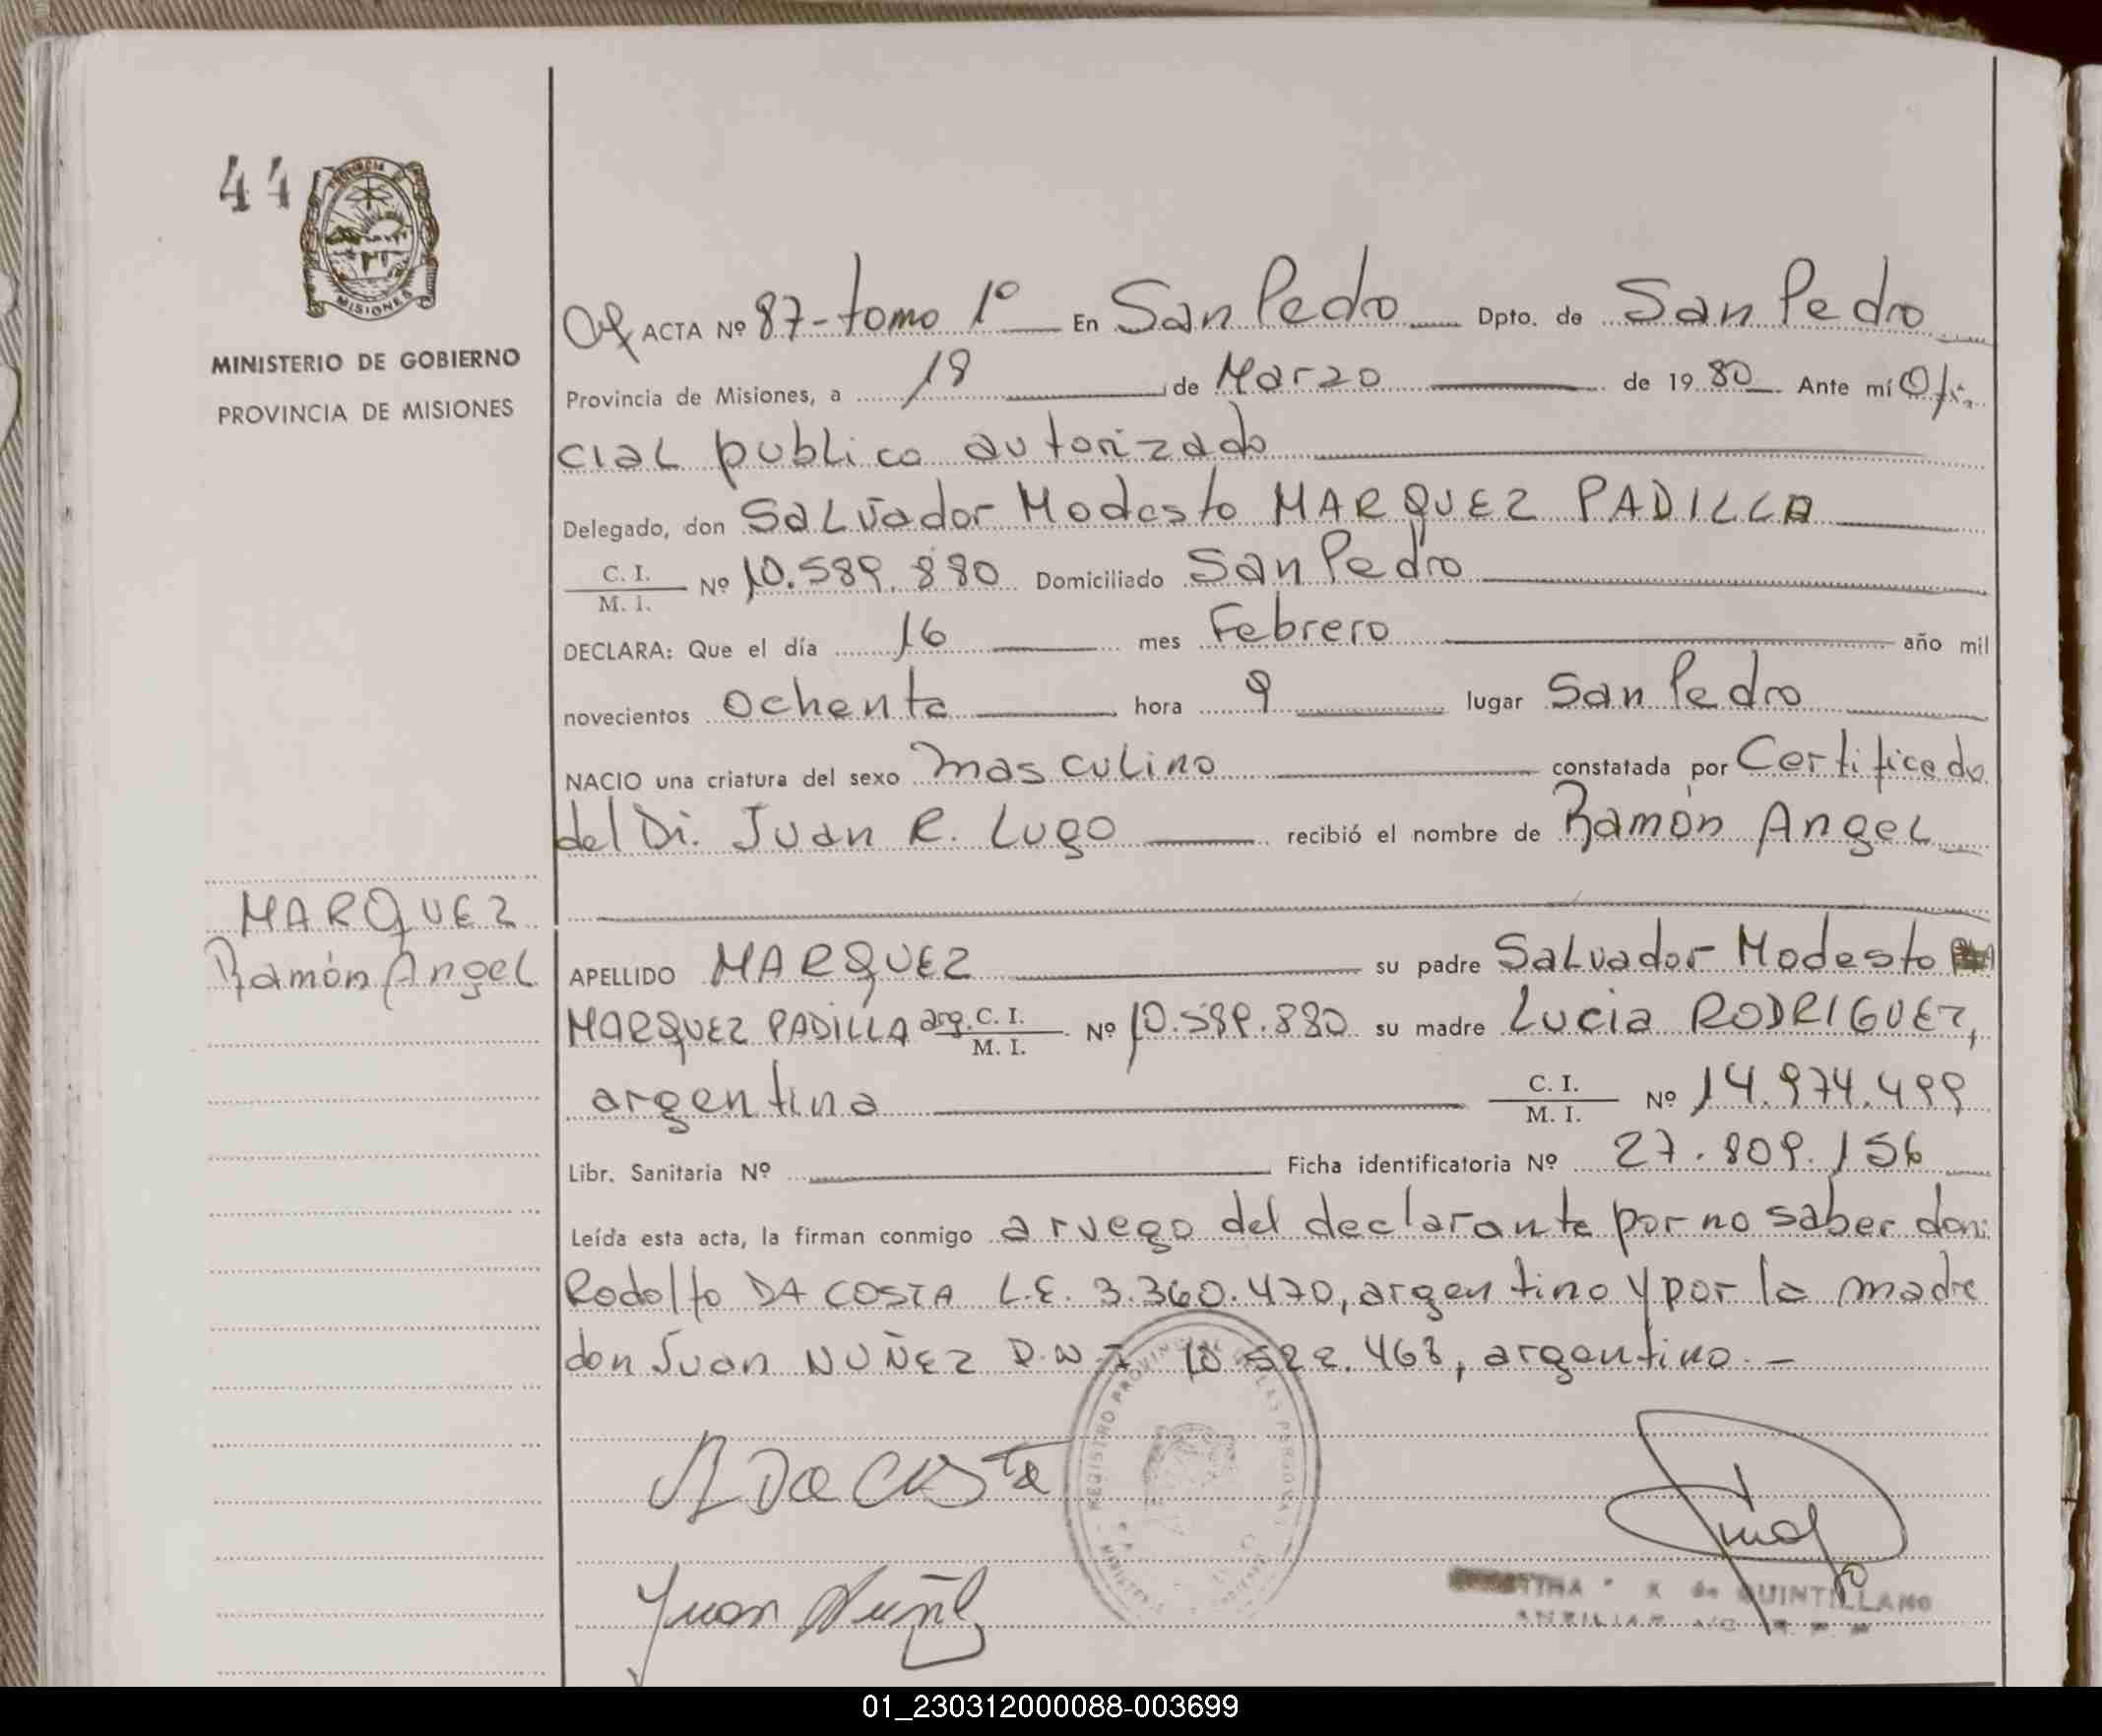 44
PROVINCIA DE
MISIONES
MINISTERIO DE GOBIERNO
PROVINCIA DE MISIONES
ACTA Nº 87-tomo 1º En San Pedro Dpto. de San Pedro
Provincia de Misiones, a 18 de Marzo de 1980 Ante mí Ofi-
cial publico autorizado
Delegado, don Salvador Modesto MARQUEZ PADILLA
C. I.
M. I. Nº 10.589.880 Domiciliado San Pedro
DECLARA: Que el día 16 mes Febrero año mil
novecientos ochenta hora 9 lugar San Pedro
NACIO una criatura del sexo masculino constatada por Certificado
del Dr. Juan R. Lugo recibió el nombre de Ramón Angel
MARQUEZ
Ramón Angel
APELLIDO MARQUEZ su padre Salvador Modesto
MARQUEZ PADILLA arg. C. I.
M. I. Nº 10.589.880 su madre Lucia RODRIGUEZ,
argentina C. I.
M. I. Nº 14.974.499
Libr. Sanitaria Nº Ficha identificatoria Nº 27.809.156
Leída esta acta, la firman conmigo a ruego del declarante por no saber don:
Rodolfo DA COSTA L.E. 3.360.470, argentino y por la madre
don Juan NUÑEZ D.N.I. 468, argentino.-
REGISTRO PROVINCIAL DE LAS PERSONAS
R Da Costa
Juan Nuñez
de QUINTILLANO
AUXILIAR
01_230312000088-003699